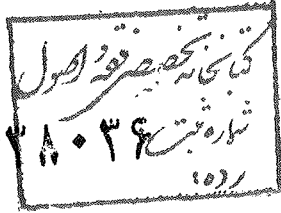 کتابخانه تخصصی فقه و اصول
شماره ثبت ۳۸۰۳۶
رده: